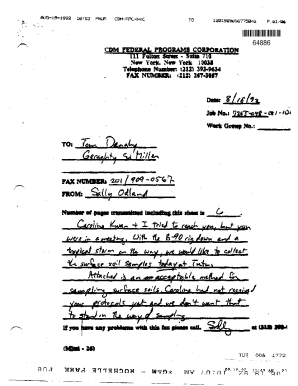 64886
CDM FEDERAL PROGRAMS CORPORATION
111 Fulton Street - Suite 710
New York, New York 10038
Telephone Number: (212) 393-9634
FAX NUMBER: (212) 267-3667
Date: 8/18/92
Job No.:
Work Group No.:
TO: Tom
Geraghty & Miller
FAX NUMBER: 201/909-0567
FROM: Sally Odland
Number of pages transmitted including this sheet is 6
Caroline Kwan & I tried to reach you, but you
were in a meeting. With the B-90 rig down and a
tropical storm on the way, we would like to collect
the surface soil samples today at
Attached is an acceptable method for
sampling surface soils. Caroline had not received
your protocols yet and we don't want that
to stand in the way of sampling.
If you have any problems with this fax please call. Sally at (212)
TUT 006 1772